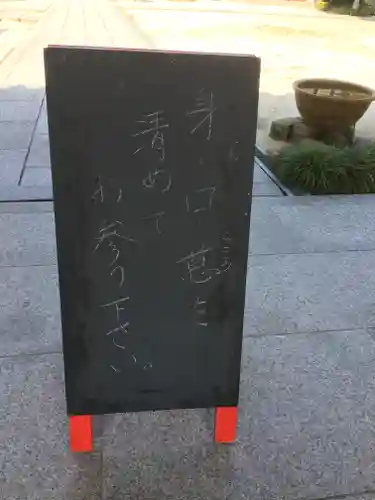 身・口 意(こころ)を
清めて
お参り下さい。